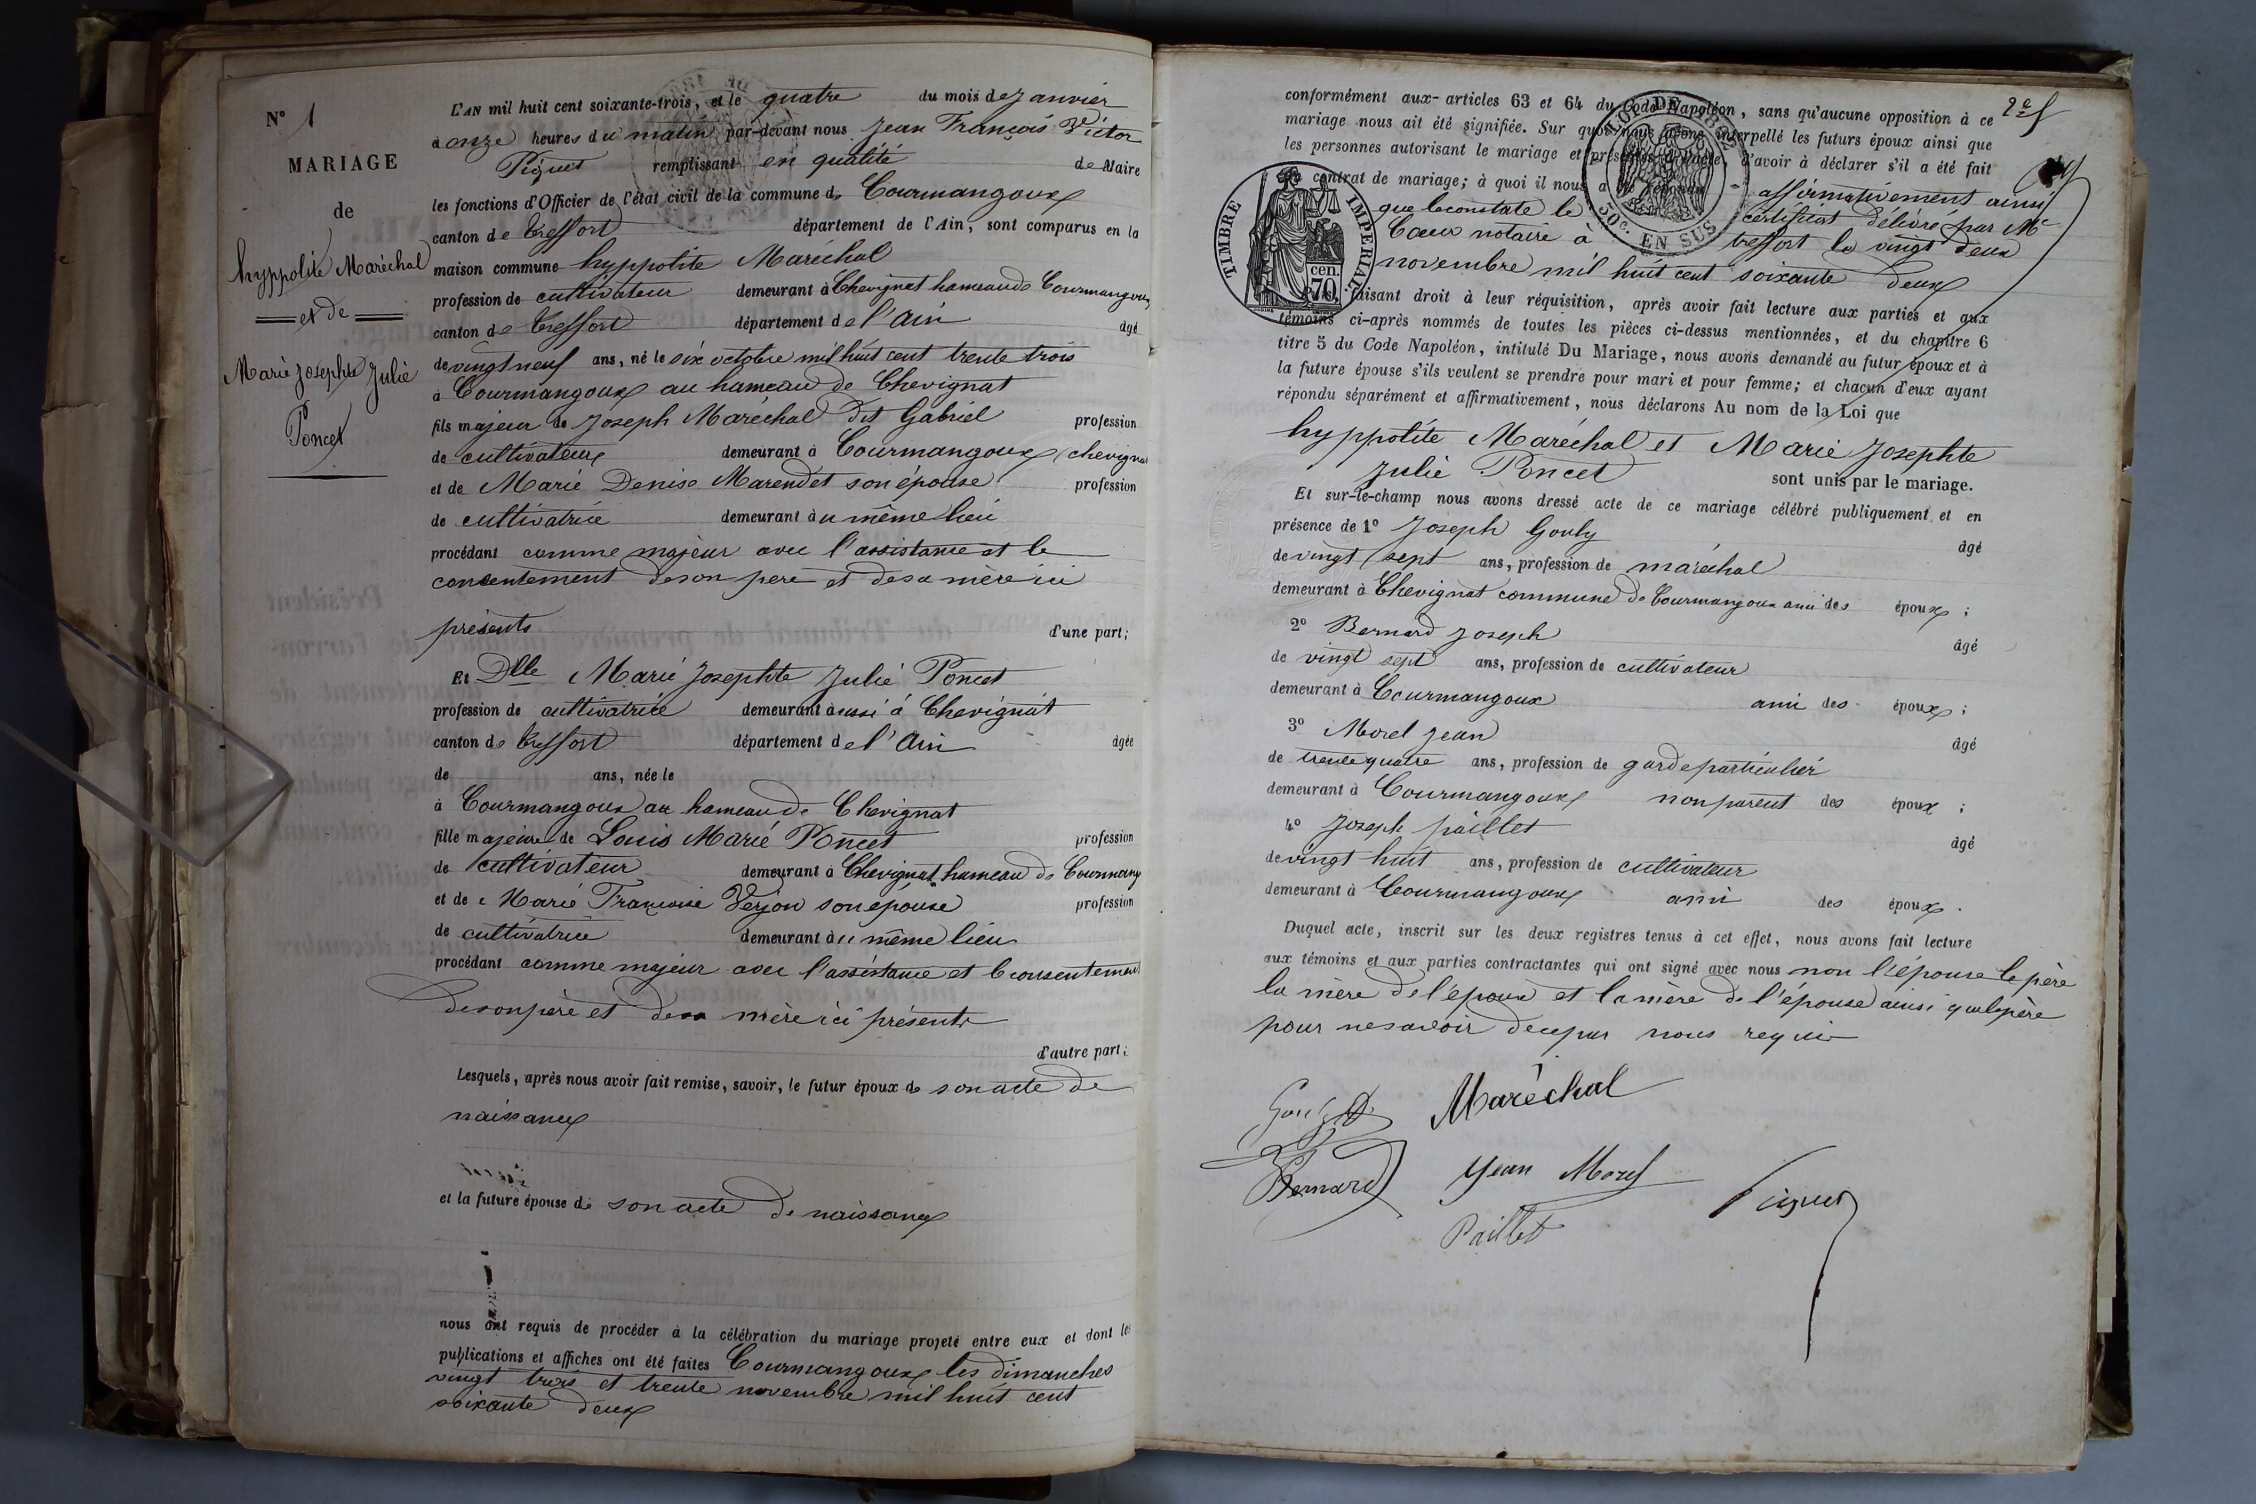 N° 1
MARIAGE
de
hyppolite Maréchal
et de
Marie Josephte Julie
Poncet
L'AN mil huit cent soixante-trois, et le quatre du mois de Janvier
à onze heures du matin par-devant nous Jean François Victor
Piguet remplissant en qualité de Maire
les fonctions d'Officier de l'état civil de la commune de Courmangoux
canton de Treffort département de l'Ain, sont comparus en la
maison commune hyppolite Maréchal
profession de cultivateur demeurant à Chevignat hameau de Courmangoux
canton de Treffort département de l'Ain âgé
de vingt neuf ans, né le six octobre mil huit cent trente trois
à Courmangoux au hameau de Chevignat
fils majeur de Joseph Maréchal dit Gabriel profession
de cultivateur demeurant à Courmangoux (chevignat
et de Marie Denise Marendet son épouse profession
de cultivatrice demeurant au même lieu
procédant comme majeur avec l'assistance et le
consentement de son père et de sa mère ici
présents d'une part;
Et Dlle Marie Josephte Julie Poncet
profession de cultivatrice demeurant aussi à Chevignat
canton de Treffort département de l'Ain âgée
de ans, née le
à Courmangoux au hameau de Chevignat
fille majeure de Louis Marie Poncet profession
de cultivateur demeurant à Chevignat hameau de Courmang
et de Marie Françoise Verjon son épouse profession
de cultivatrice demeurant au même lieu
procédant comme majeur avec l'assistance et le consentement
de son père et de sa mère ici présents
d'autre part;
Lesquels, après nous avoir fait remise, savoir, le futur époux de son acte de
naissance
et la future épouse de son acte de naissance
nous ont requis de procéder à la célébration du mariage projeté entre eux et dont les
publications et affiches ont été faites Courmangoux les dimanches
vingt trois et trente novembre mil huit cent
soixante deux
conformément aux articles 63 et 64 du Code Napoléon, sans qu'aucune opposition à ce
mariage nous ait été signifiée. Sur quoi nous avons interpellé les futurs époux ainsi que
les personnes autorisant le mariage et présentes d'avoir à déclarer s'il a été fait
contrat de mariage; à quoi il nous a répondu affirmativement ainsi
que le constate le certificat délivré par Me
notaire à treffort le vingt deux
novembre mil huit cent soixante deux
faisant droit à leur réquisition, après avoir fait lecture aux parties et aux
témoins ci-après nommés de toutes les pièces ci-dessus mentionnées, et du chapitre 6
titre 5 du Code Napoléon, intitulé Du Mariage, nous avons demandé au futur époux et à
la future épouse s'ils veulent se prendre pour mari et pour femme; et chacun d'eux ayant
répondu séparément et affirmativement, nous déclarons Au nom de la Loi que
hyppolite Maréchal et Marie Josephte
Julie Poncet sont unis par le mariage.
Et sur-le-champ nous avons dressé acte de ce mariage célébré publiquement et en
présence de 1° Joseph Gouly âgé
de vingt sept ans, profession de maréchal
demeurant à Chevignat commune de Courmangoux ami des époux;
2° Bernard Joseph âgé
de vingt sept ans, profession de cultivateur
demeurant à Courmangoux ami des époux;
3° Morel Jean âgé
de trente quatre ans, profession de garde particulier
demeurant à Courmangoux non parent des époux;
4° Joseph paillet âgé
de vingt huit ans, profession de cultivateur
demeurant à Courmangoux ami des époux.
Duquel acte, inscrit sur les deux registres tenus à cet effet, nous avons fait lecture
aux témoins et aux parties contractantes qui ont signé avec nous non l'épouse le père
la mère de l'époux et la mère de l'épouse ainsi que le père
pour ne savoir de ce par nous requis
Maréchal
Bernard
Jean Morel
Paillet
Piguet
TIMBRE IMPERIAL
70 cen.
LOI DE 1862
50 c. EN SUS